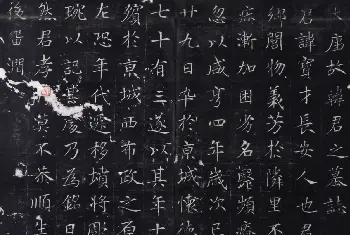 大唐故韓君之墓誌
君諱寶才長安人也
鄉閭物義芳於隣里不
疾漸加困劣名醫頻療
忽以咸亨四年歲次
廿九日卒於京城懷德
七十有三遂以其年十
殯於京城西布政之原
左恐年代遷移墳將
琬以記甚慶乃為銘曰
然君孝莫不恭順生
後留潤